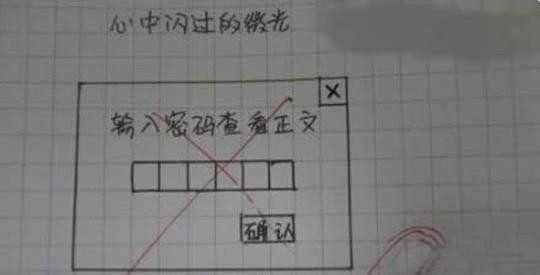 心中闪过的微光
X
输入密码查看正文
确认